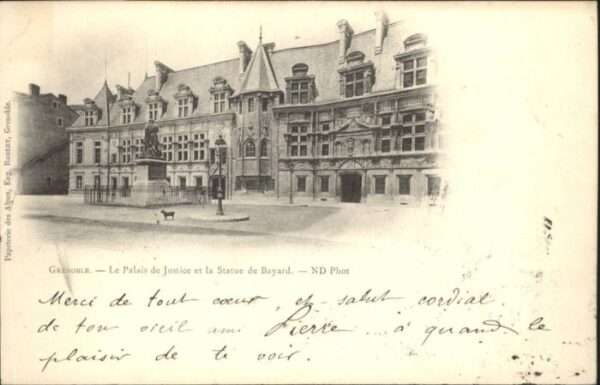 Papeterie des Alpes, Eug. Robert, Grenoble.
GRENOBLE. — Le Palais de Justice et la Statue de Bayard. — ND Phot
Merci de tout cœur, et salut cordial
de ton vieil ami Pierre... à quand le
plaisir de te voir.